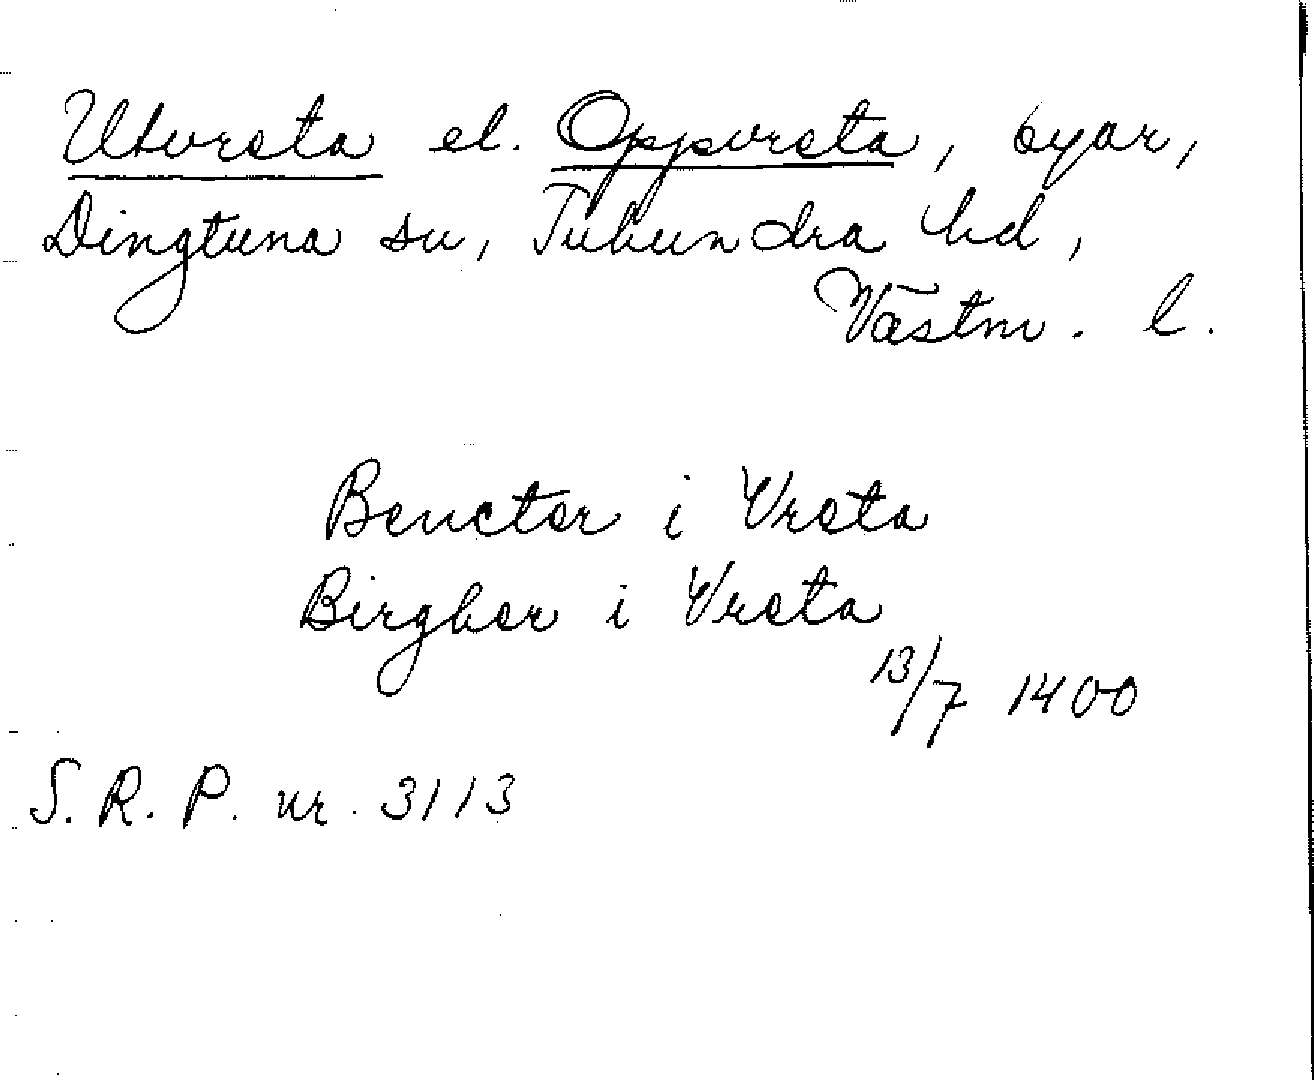 Utvreta el. Oppvreta, byar,
Dingtuna sn, Tuhundra hd,
Västm. l.
Bencter i Vreta
Birgher i Vreta
13/7 1400
S. R. P. nr. 3113